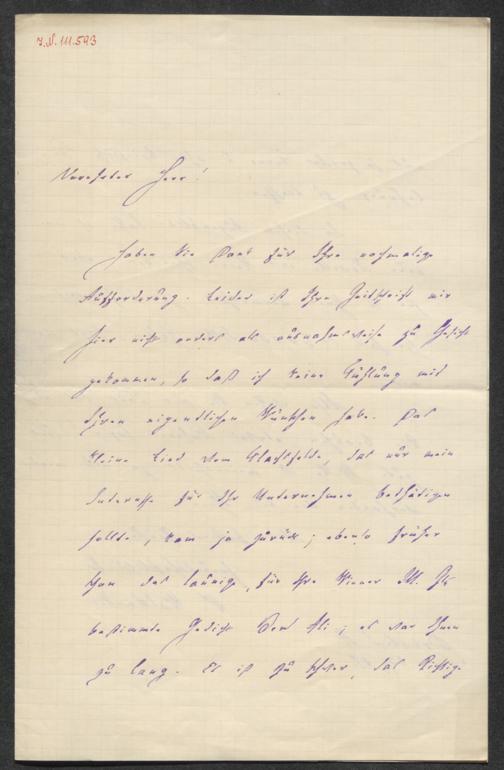 J.N. 111.593
Verehrter Herr!
Haben Sie Dank für Ihre nochmalige
Aufforderung. Leider ist Ihre Zeitschrift mir
hier nicht anders als ausnahmsweise zu Gesicht
gekommen, so daß ich keine Fühlung mit
Ihren eigentlichen Wünschen habe. Das
kleine Lied vom Flachsfelde, das nur mein
Interesse für Ihr Unternehmen bethätigen
sollte, kam ja zurück; ebenso früher
schon das launige, für Ihre Wiener
bestimmte Gedicht Ali; es war Ihnen
zu lang. Es ist zu schwer, das Richtige